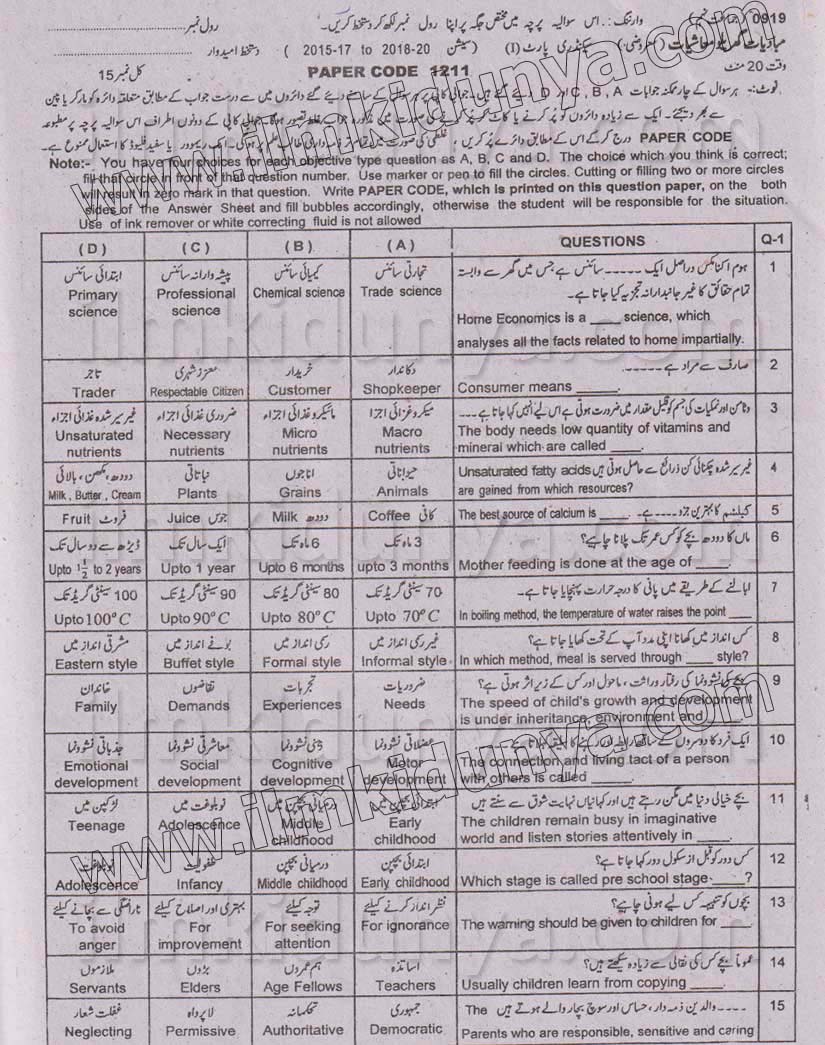 0919 وارننگ:۔ اس سوالیہ پرچہ میں مختص جگہ پر اپنا رول نمبر لکھ کر دستخط کریں۔ رول نمبر
مبادیات گھریلو معاشیات (معروضی) سیکنڈری پارٹ (I) (سیشن 2015-17 to 2018-20) دستخط امیدوار
وقت 20 منٹ PAPER CODE 1211 کل نمبر 15
نوٹ:- ہر سوال کے چار ممکنہ جوابات A , B , C اور D دیئے گئے ہیں۔ جوابی کاپی پر ہر سوال کے سامنے دیئے گئے دائروں میں سے درست جواب کے مطابق متعلقہ دائرہ کو مارکر یا پین
سے بھر دیجئے۔ ایک سے زیادہ دائروں کو پُر کرنے یا کاٹ کر پُر کرنے کی صورت میں مذکورہ جواب غلط تصور ہوگا۔ جوابی کاپی کے دونوں اطراف اس سوالیہ پرچہ پر مطبوعہ
PAPER CODE درج کر کے اس کے مطابق دائرے پُر کریں، غلطی کی صورت میں تمام تر ذمہ داری طالب علم پر ہوگی۔ انک ریموور یا سفید فلیوڈ کا استعمال ممنوع ہے۔
Note:- You have four choices for each objective type question as A, B, C and D. The choice which you think is correct;
fill that circle in front of that question number. Use marker or pen to fill the circles. Cutting or filling two or more circles
will result in zero mark in that question. Write PAPER CODE, which is printed on this question paper, on the both
sides of the Answer Sheet and fill bubbles accordingly, otherwise the student will be responsible for the situation.
Use of ink remover or white correcting fluid is not allowed
( D ) ( C ) ( B ) ( A ) QUESTIONS Q-1
ابتدائی سائنس پیشہ وارانہ سائنس کیمیائی سائنس تجارتی سائنس ہوم اکنامکس دراصل ایک ----- سائنس ہے جس میں گھر سے وابستہ 1
تمام حقائق کا غیر جانبدارانہ تجزیہ کیا جاتا ہے۔
Primary science Professional science Chemical science Trade science Home Economics is a ____ science, which
analyses all the facts related to home impartially.
تاجر معزز شہری خریدار دکاندار صارف سے مراد ہے ----- 2
Trader Respectable Citizen Customer Shopkeeper Consumer means ______.
غیر سیر شدہ غذائی اجزاء ضروری غذائی اجزاء مائیکرو غذائی اجزاء میکرو غذائی اجزا وٹامن اور نمکیات کی جسم کو قلیل مقدار میں ضرورت ہوتی ہے اس لیے انہیں کہا جاتا ہے--- 3
Unsaturated nutrients Necessary nutrients Micro nutrients Macro nutrients The body needs low quantity of vitamins and
mineral which are called ____.
دودھ، مکھن، بالائی نباتاتی اناجوں حیواناتی غیر سیر شدہ چکنائی کن ذرائع سے حاصل ہوتی ہیں Unsaturated fatty acids 4
Milk , Butter , Cream Plants Grains Animals are gained from which resources?
فروٹ Fruit جوس Juice دودھ Milk کافی Coffee کیلشیم کا بہترین جزو ---- ہے۔ The best source of calcium is ____. 5
ڈیڑھ سے دو سال تک ایک سال تک 6 ماہ تک 3 ماہ تک ماں کا دودھ بچے کو کس عمر تک پلانا چاہیے؟ 6
Upto 1½ to 2 years Upto 1 year Upto 6 months upto 3 months Mother feeding is done at the age of _____.
100 سینٹی گریڈ تک 90 سینٹی گریڈ تک 80 سینٹی گریڈ تک 70 سینٹی گریڈ تک ابالنے کے طریقے میں پانی کا درجہ حرارت پہنچایا جاتا ہے۔ 7
Upto 100°C Upto 90°C Upto 80°C Upto 70°C In boiling method, the temperature of water raises the point ___
مشرقی انداز میں بوفے انداز میں رسمی انداز میں غیر رسمی انداز میں کس انداز میں کھانا اپنی مدد آپ کے تحت کھایا جاتا ہے؟ 8
Eastern style Buffet style Formal style Informal style In which method, meal is served through ____ style?
خاندان تقاضوں تجربات ضروریات بچے کی نشوونما کی رفتار وراثت، ماحول اور کس کے زیر اثر ہوتی ہے؟ 9
Family Demands Experiences Needs The speed of child's growth and development
is under inheritance, environment and ____.
جذباتی نشوونما معاشرتی نشوونما ذہنی نشوونما عضلاتی نشوونما ایک فرد کا دوسروں کے ساتھ رابطے اور رہنے کا 10
Emotional development Social development Cognitive development Motor development The connection and living tact of a person
with others is called ____.
لڑکپن میں نوبلوغت میں درمیانی بچپن میں ابتدائی بچپن میں بچے خیالی دنیا میں مگن رہتے ہیں اور کہانیاں نہایت شوق سے سنتے ہیں 11
Teenage Adolescence Middle childhood Early childhood The children remain busy in imaginative
world and listen stories attentively in ____.
نوبلوغت طفولیت درمیانی بچپن ابتدائی بچپن کس دور کو قبل از سکول دور کہا جاتا ہے؟ 12
Adolescence Infancy Middle childhood Early childhood Which stage is called pre school stage ____?
ناراضگی سے بچانے کیلئے بہتری اور اصلاح کیلئے توجہ کیلئے نظر انداز کرنے کیلئے بچوں کو تنبیہہ کس لیے ہونی چاہیے؟ 13
To avoid anger For improvement For seeking attention For ignorance The warning should be given to children for ____.
ملازموں بڑوں ہم عمروں اساتذہ عموماً بچے کس کی نقالی سے زیادہ سیکھتے ہیں؟ 14
Servants Elders Age Fellows Teachers Usually children learn from copying ____.
غفلت شعار لاپرواہ تحکمانہ جمہوری ---- والدین ذمہ دار، حساس اور سوچ بچار والے ہوتے ہیں The 15
Neglecting Permissive Authoritative Democratic Parents who are responsible, sensitive and caring
www.ilmkidunya.com
www.ilmkidunya.com
ilmkidunya.com
ilmkidunya.com
ilmkidunya.com